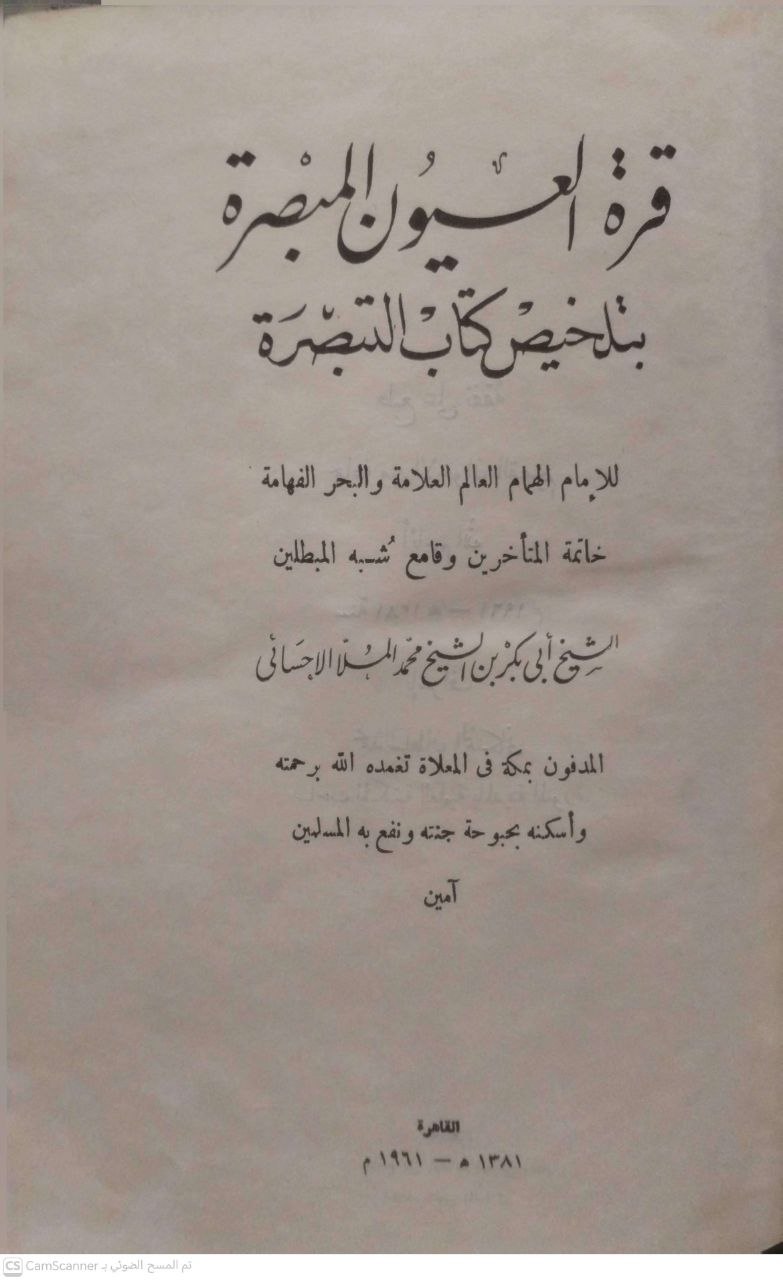 قرة العيون المبصرة
بتلخيص كتاب التبصرة
للإمام الهمام العالم العلامة والبحر الفهامة
خاتمة المتأخرين وقامع شُبه المبطلين
الشيخ أبي بكر بن الشيخ محمد الملا الاحسائى
المدفون بمكة فى المعلاة تغمده الله برحمته
وأسكنه بحبوحة جنته ونفع به المسلمين
آمين
القاهرة
١٣٨١ ه — ١٩٦١ م
CS CamScanner تم المسح الضوئي بـ